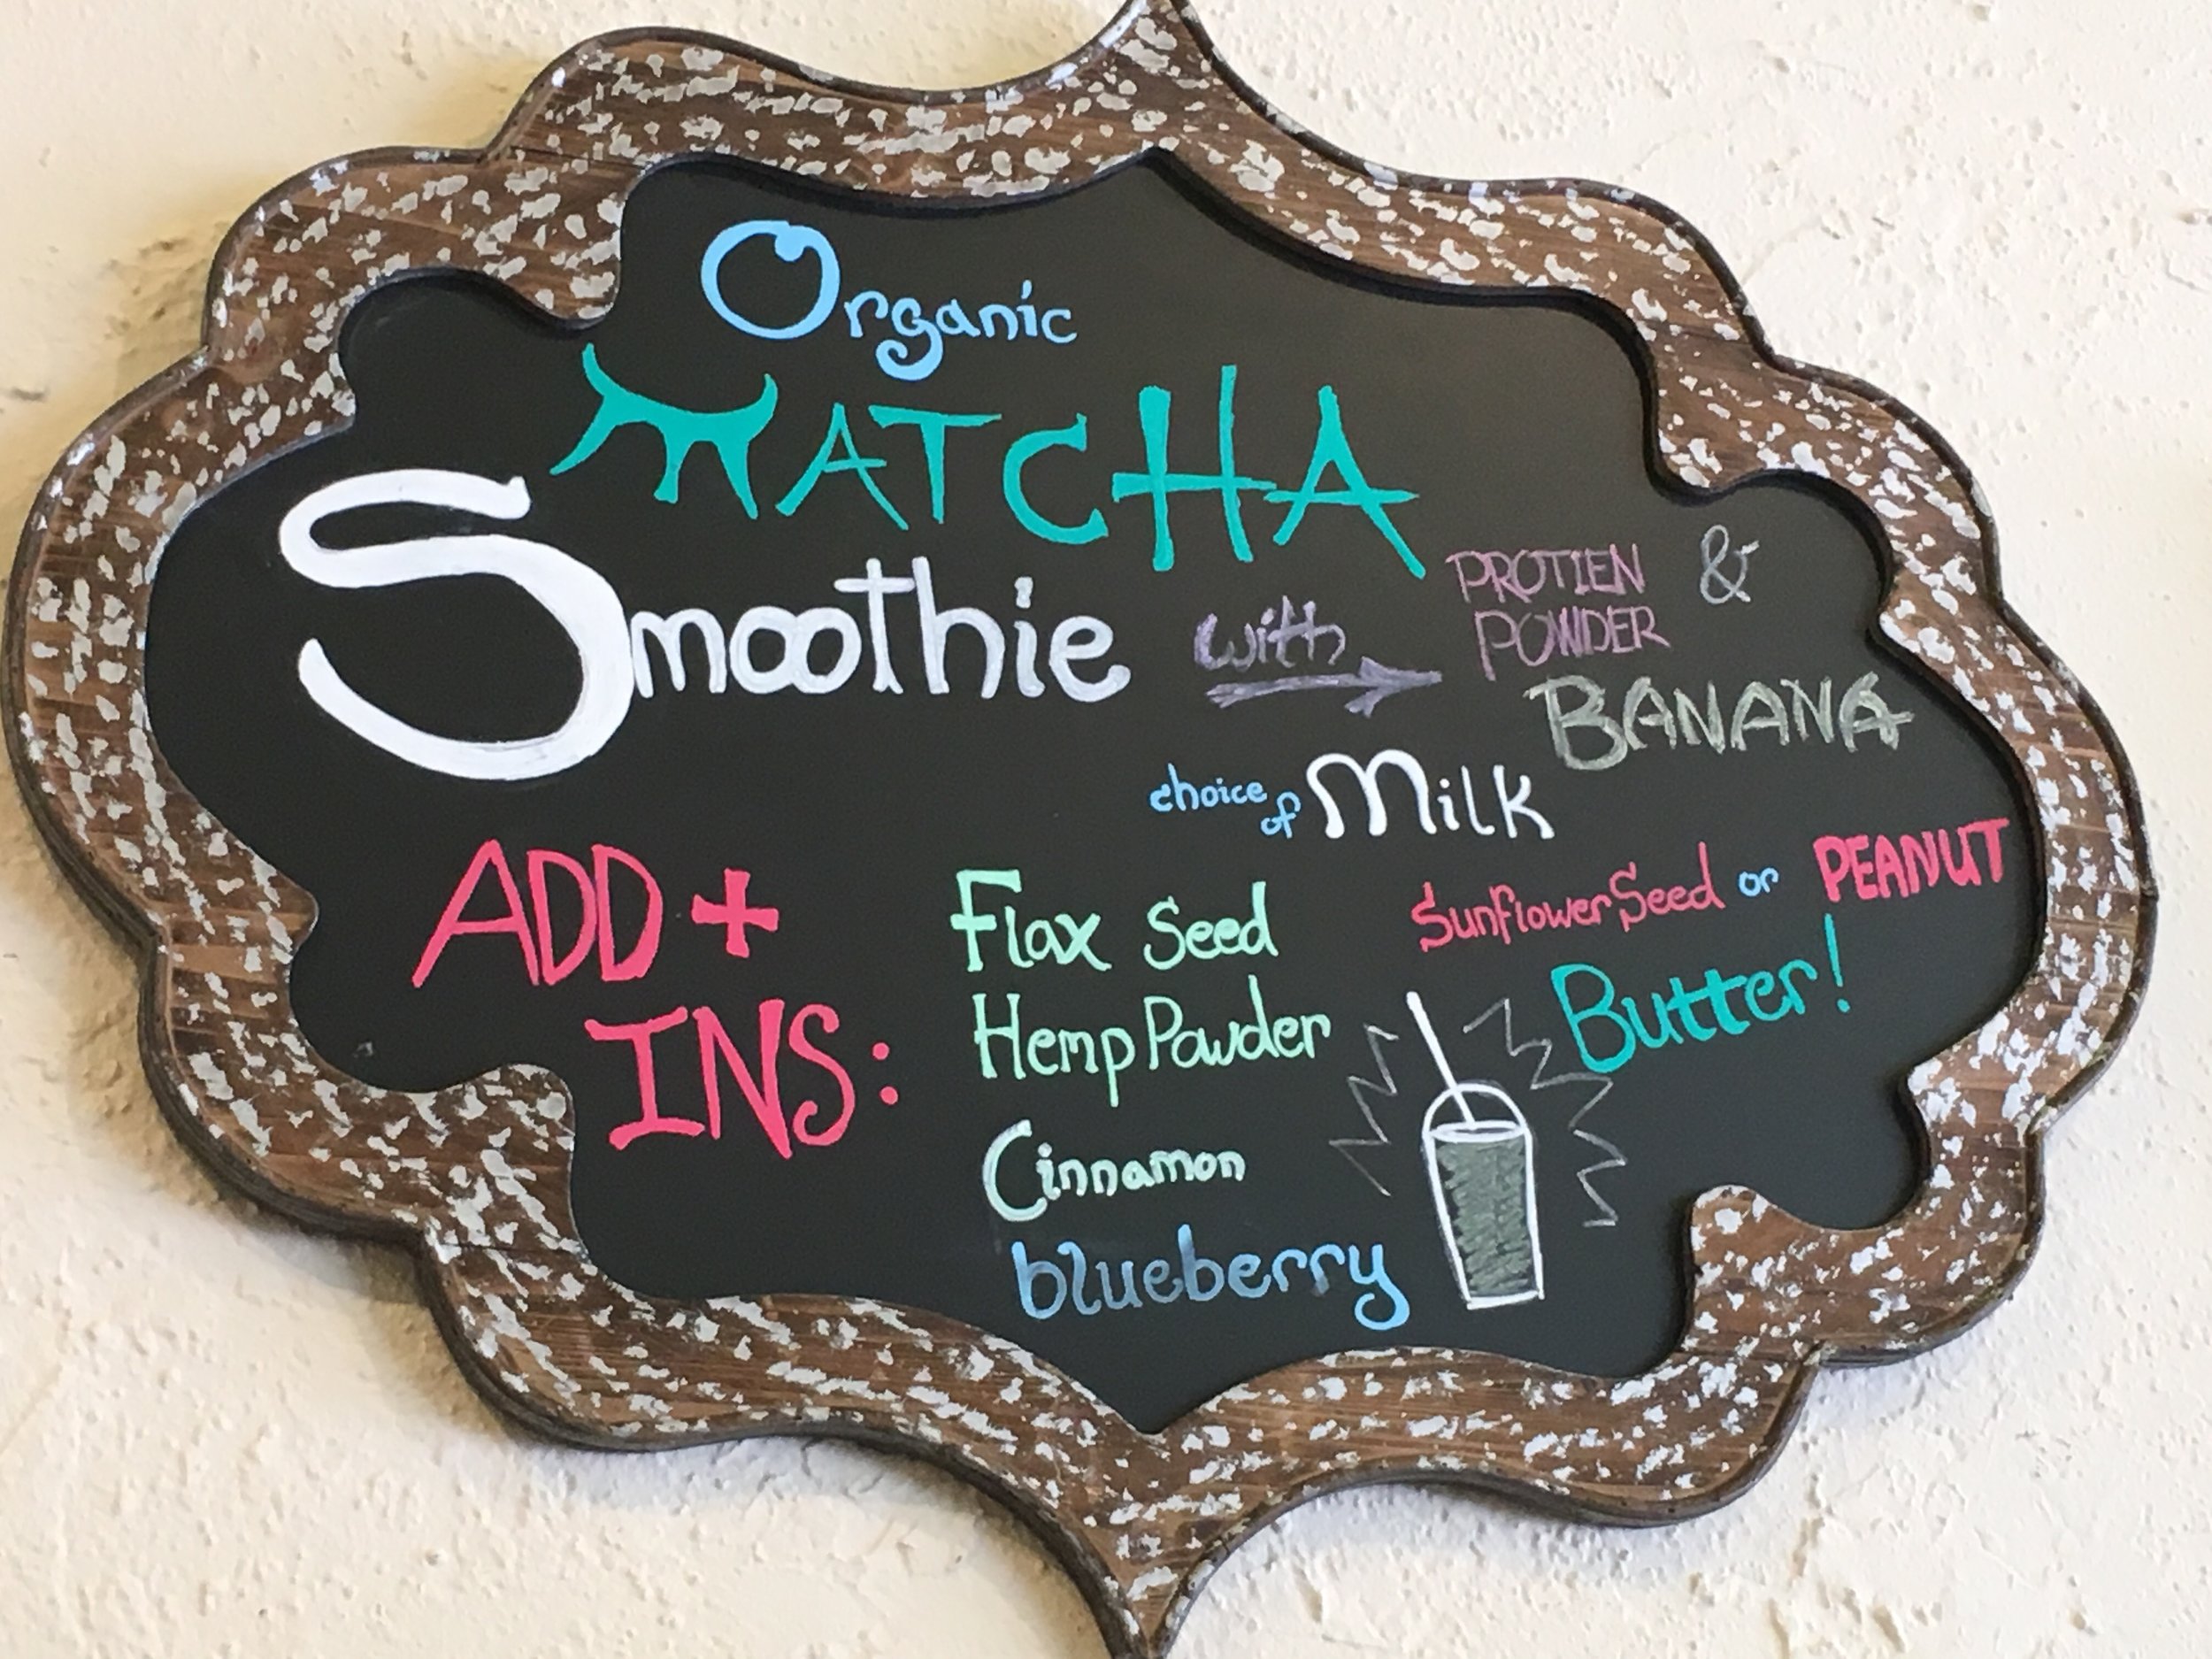 Organic
MATCHA
Smoothie with PROTIEN &
POWDER
BANANA
choice of Milk
ADD +
INS:
Flax Seed
Hemp Powder
Cinnamon
blueberry
Sunflower Seed or PEANUT
Butter!